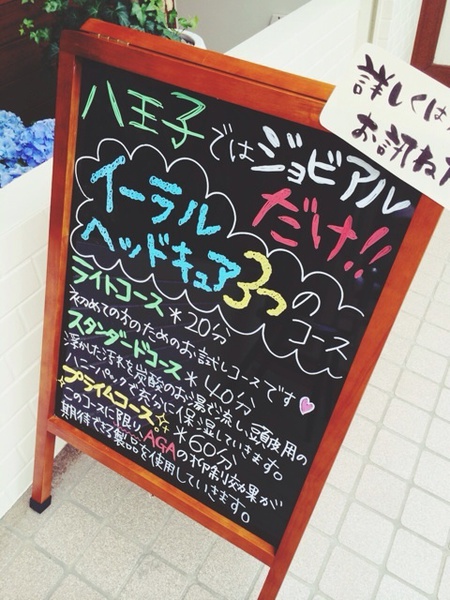 八王子ではジョビアル
だけ!!
イーラル
ヘッドキュア3つの
コース
ライトコース *20分
初めての方のためのお試しコースです
スタンダードコース *40分
浮かした汚れを炭酸のお湯で流し、頭皮用の
ハニーパックで充分に保湿していきます。
プライムコース *60分
このコースに限りAGAの抑制効果が
期待できる製品を使用していきます。
詳しくは
お訊ね